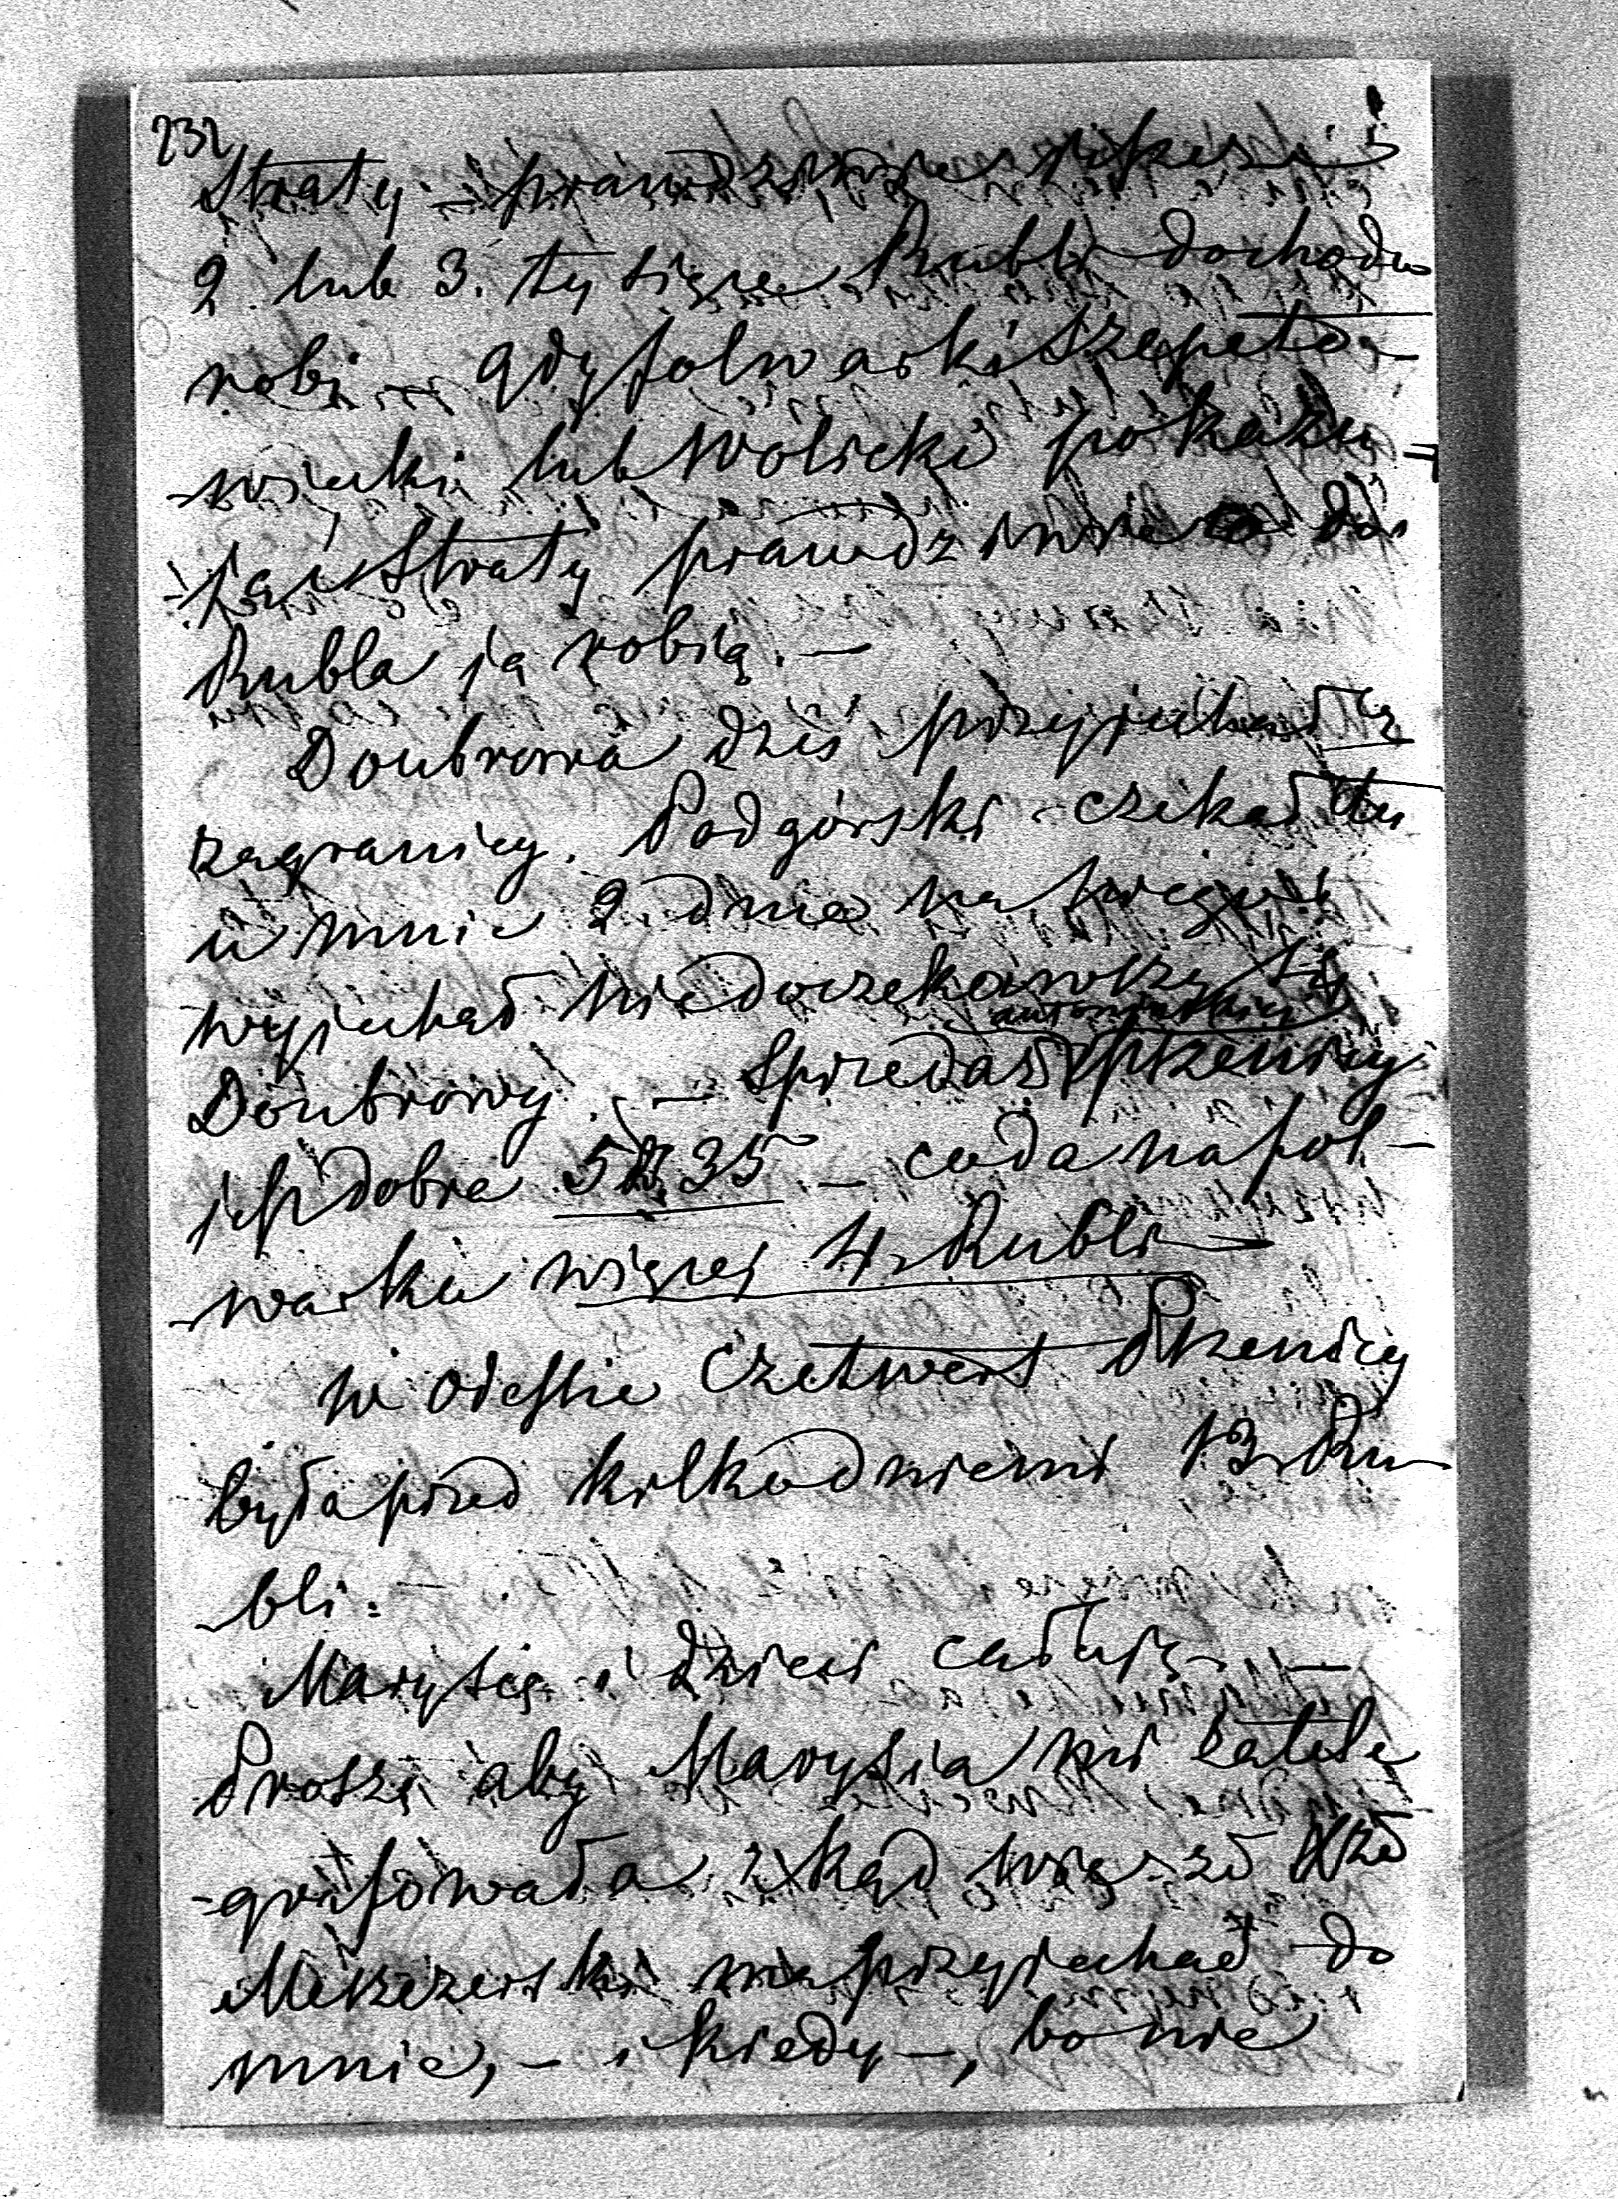 232
Straty – prawdziwie
2 lub 3. tysiące Rubli dochodu
robi – gdy folwarki Szepeto-
-wiecki lub Wolicki pokazu=
-ją i straty prawdziwie do
Rubla ją robią. –
Doubrowa dziś przyjechał z
zagranicy. Podgórski czekał tu
u mnie 2. dnie na niego i
wyjechał niedoczekawszy się
Doubrowy. – Sprzedaż pszenicy
jest dobra 5 35 – co da na fol-
-warku więcej 4. Rubli –
w Odessie Czetwert Pszenicy
była przed kilkadniemi 13. Ru-
-bli. –
Marysię i dzieci całuję. –
Proszę aby Marysia mi zatele
-grafowała zkąd wie że
ma przyjechać do
mnie, – i kiedy –, bo nie